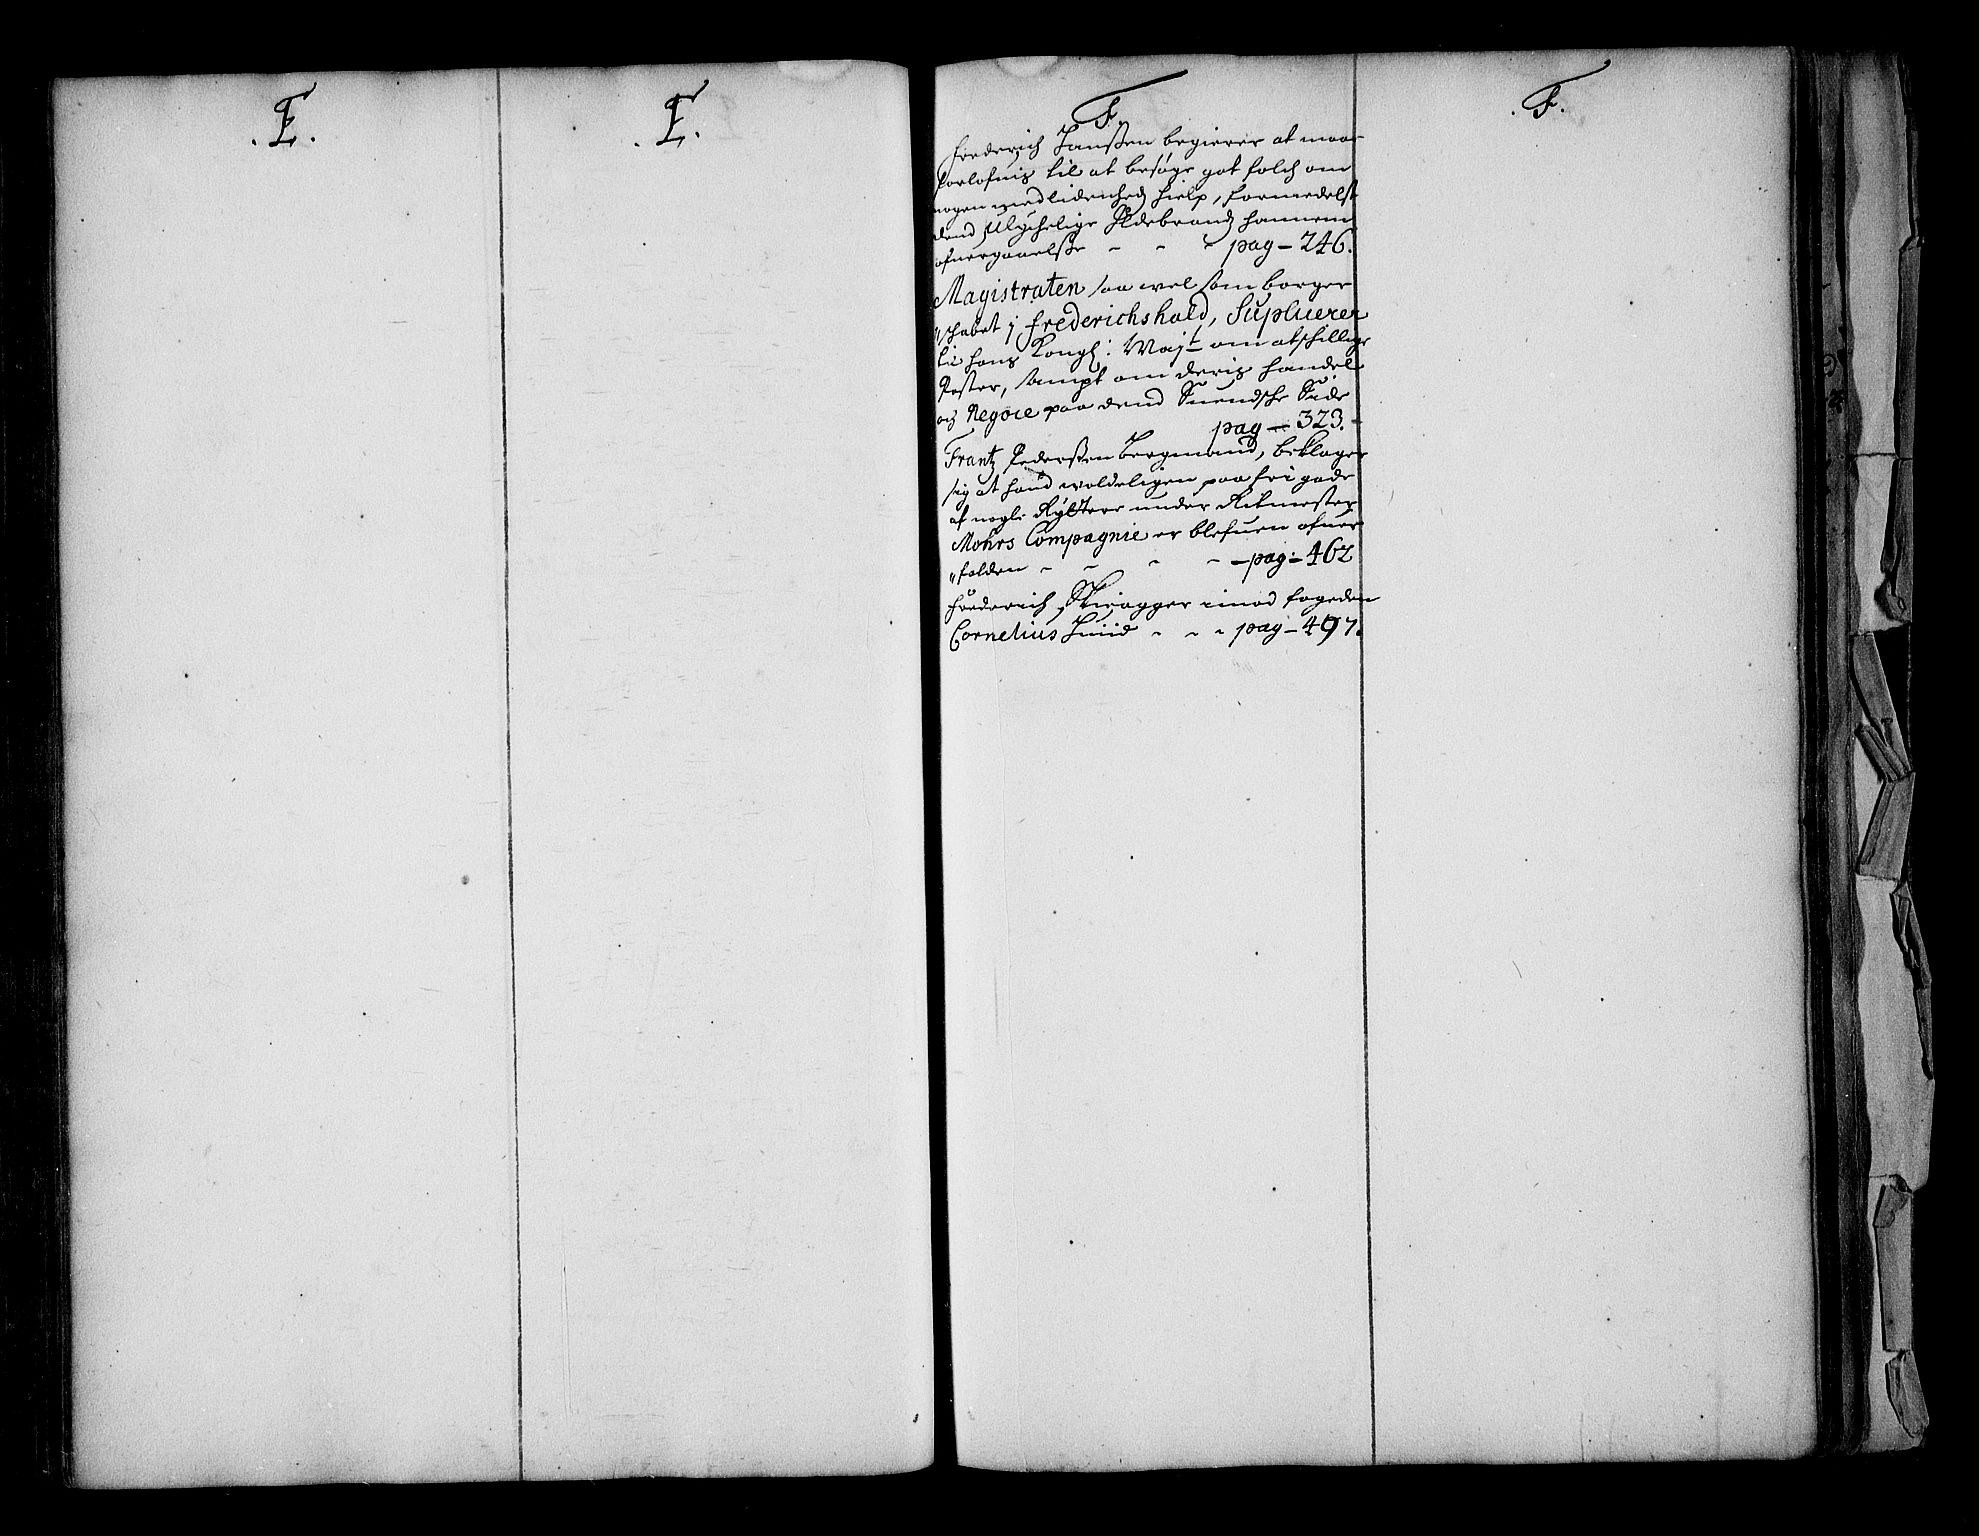 .E.
.E.
F.
Frederich Janßen begierer at maae
forlofvis til at besøge got folch om
nogen medlidenhed hielp, formedelst
dend Ulychelige Ildebrand hannem
ofvergaaelße - - pag - 246.
Magistraten saa vel som borger
"schabet j Frederichshald, Supluerer
til hans Kongl: Mayt om atschillige
Poster, sampt om deris handel
og Negoie paa dend Suendsche Side
pag - 323.-
Frantz Pederßen Bergmand, beklager
sig at hand voldeligen paa fri gade
af nogle Rÿttere under Ritmester
Mohrs Compagnie er blefuen ofuer
"falden - - - - - pag: - 462
Frederich imod fogeden
Cornelius - - - pag - 497.
.F.